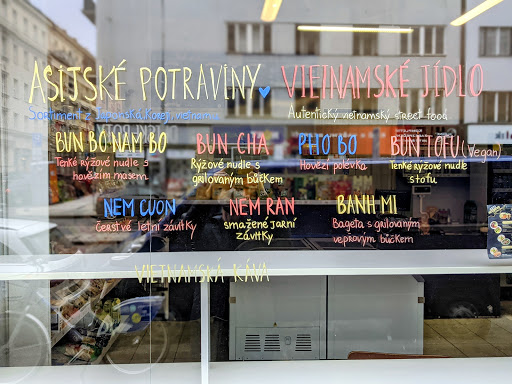 ASIJSKÉ POTRAVINY
VIETNAMSKÉ JÍDLO
Sortiment z Japonska, Koreji, Vietnamu
Autentický vietnamský street food
BUN BO NAM BO
Tenké rýžové nudle s
hovězím masem
BUN CHA
Rýžové nudle s
grilovaným bůčkem
PHO BO
Hovězí polévka
BUN TOFU (Vegan)
Tenké rýžové nudle
s tofu
NEM CUON
Čerstvé letní závitky
NEM RAN
smažené jarní
závitky
BANH MI
Bageta s grilovaným
vepřovým bůčkem
VIETNAMSKÁ KÁVA